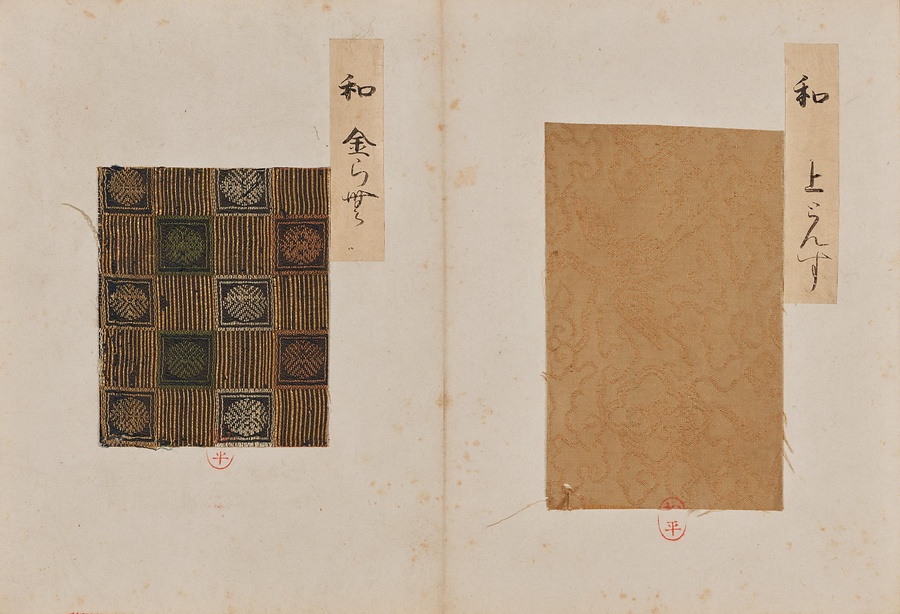 和 上とんす
平
和 金ら
平